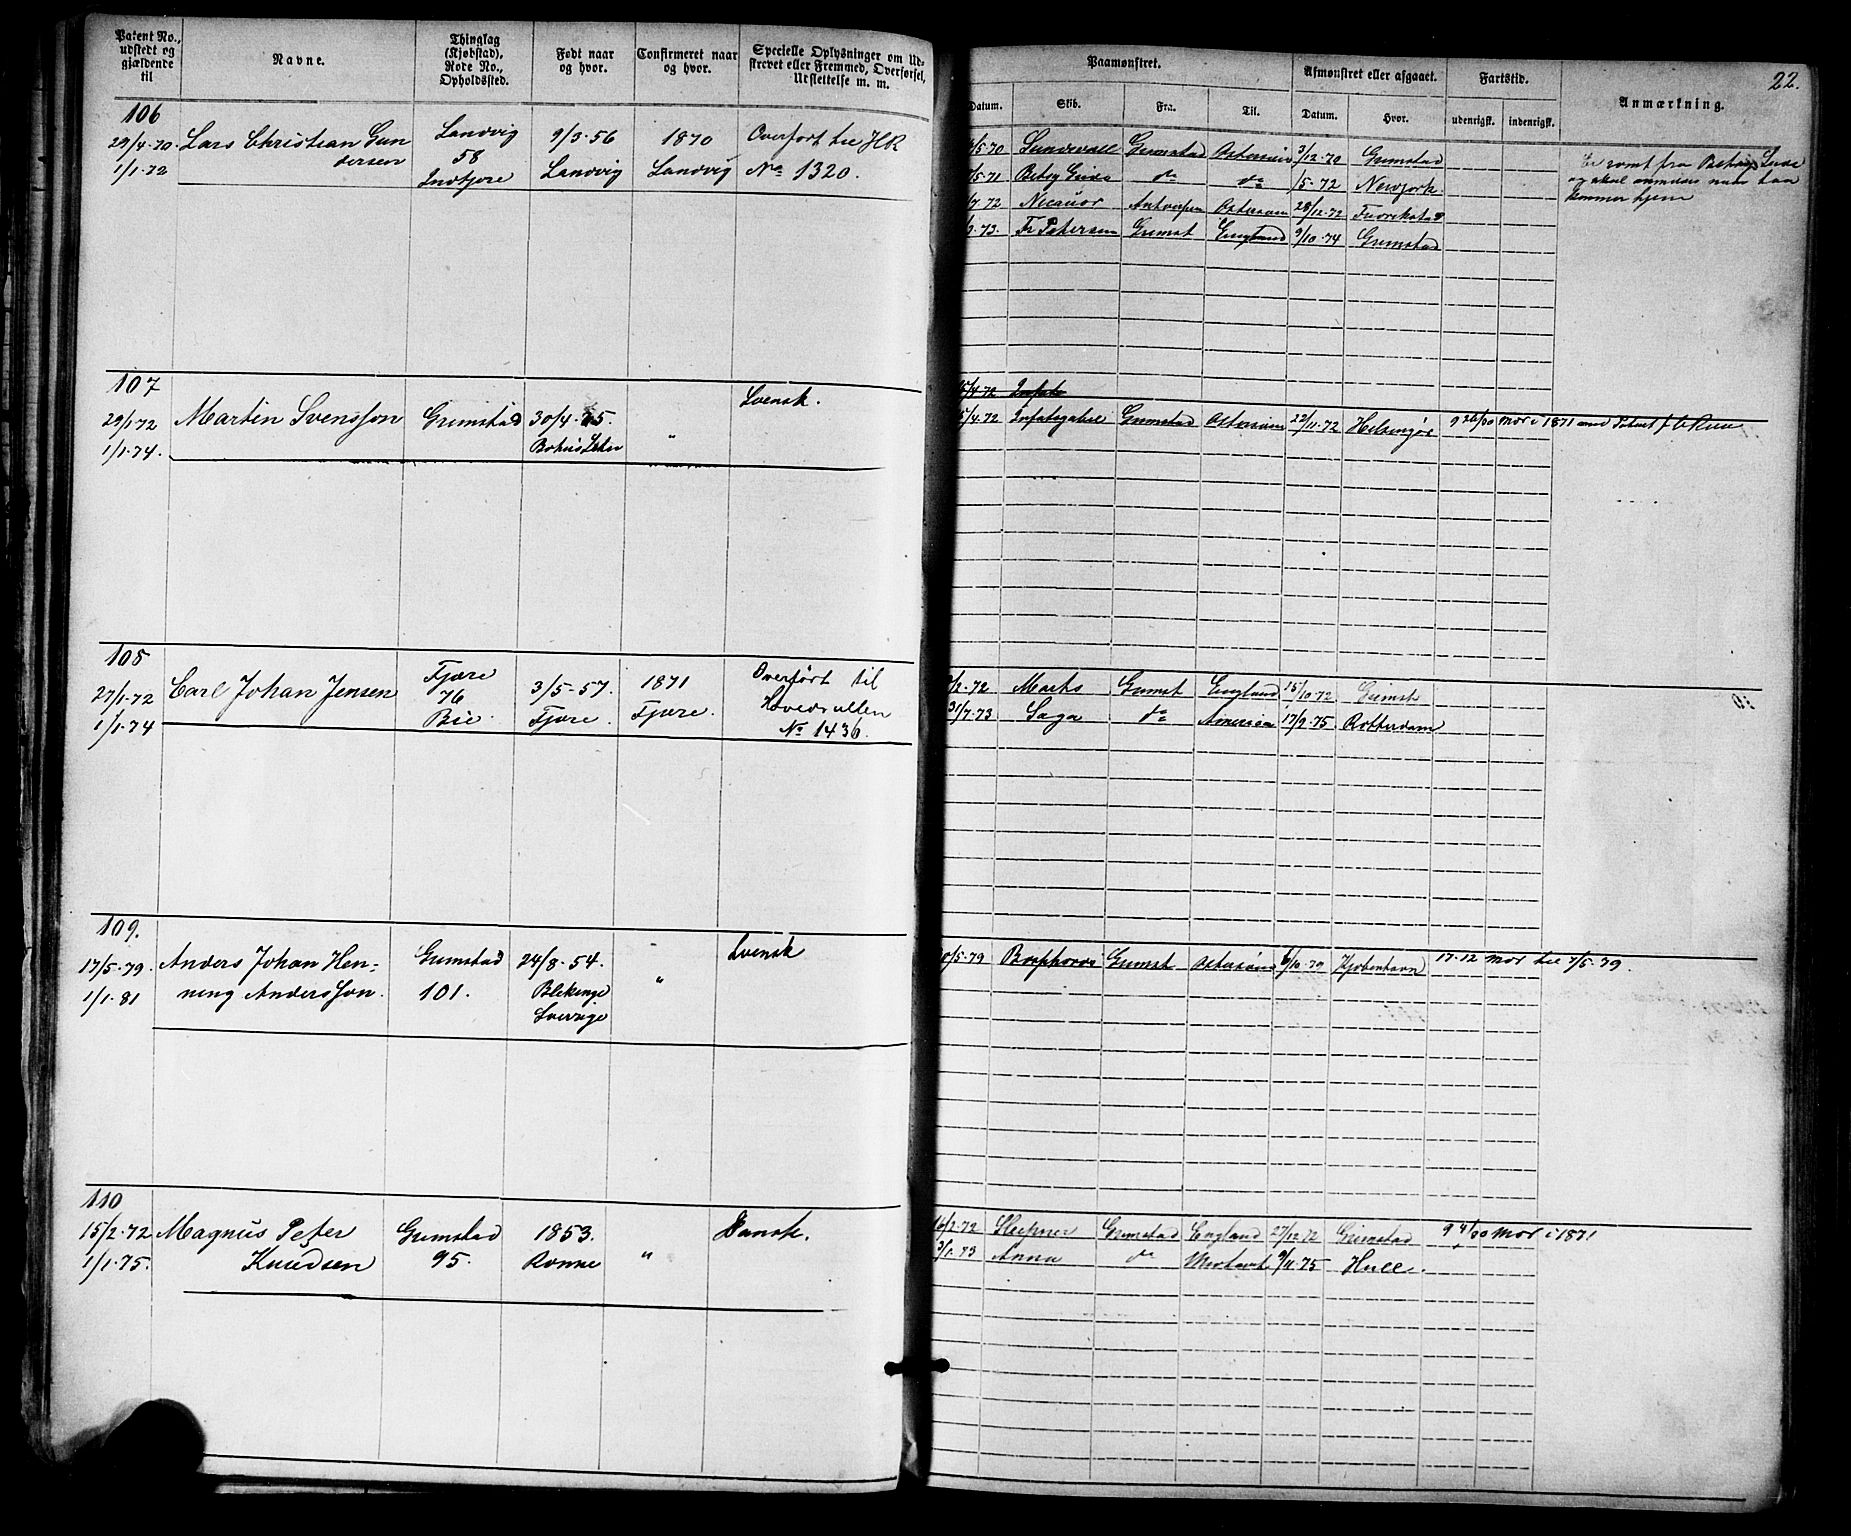 Patent No., udstedt og gjældende til
Navne.
Thinglag (Kjøbstad), Rode No., Opholdssted.
Født naar og hvor.
Confirmeret naar og hvor.
Specielle Oplysninger om Udskrevet eller Fremmed, Overførsel, Udslettelse m. m.
Paamønstret.
Afmønstret eller afgaaet.
Fartstid.
Anmærkning.
22.
Datum.
Skib.
Fra.
Til.
Datum.
Hvor.
udenrigsk.
indenrigsk.
106
29/4-70
1/1-72
Lars Christian Gun
dersen
Landvig
58
Indtjore
9/3-56
Landvig
1870
Landvig
Overført til HR
No 1320.
/5-70 Sundevall Grimstad Østersøen 3/12-70 Grimstad
/5-71 Betsy Gude do do /5-72 Newyork
/7-72 Nicanor Antverpen Østersøen 28/12-72 Fredrikstad
/3-73. Fr Petersen Grimst England 9/10-74 Grimstad
Er romt fra Betsy Gude
og skal anmeldes naar han
kommer hjem
107
29/1-72
1/1-74.
Martin Svensson
Grimstad
30/4-
Bohus Lehn
"
Svensk.
15/4-72
15/4-72 Grimstad Østersøen 22/11-72 Helsingør 9 26/30 Mdr i 1871 med Patent f C
108
27/1-72
1/1-74
Carl Johan Jensen
Fjære
76
Bie.
3/5-57.
Fjære.
1871
Fjære.
Overført til
Hovedrullen
No 1436.
/2-72 Marks Grimst England 15/10-72 Grimst
31/7-73 Saga do America 17/9-75 Rotterdam
109.
17/5-79
1/1-81
Anders Johan Hen=
ning Andersson
Grimstad
101.
24/8-54.
Blekinge
Sverige
"
Svensk
/5-79 Grimst Østersøen 6/10-79 Kjøbenhavn 17-12 Mdr til 7/5-79.
110
15/2-72
1/1-75.
Magnus Peter
Knudsen
Grimstad
95.
1853.
Rønne
"
Dansk.
16/2-72 Sleipner Grimstad England 27/12-72 Grimstad 9 4/30 Mdr i 1871
3/1-73 Anna do 9/11-75 Hull.